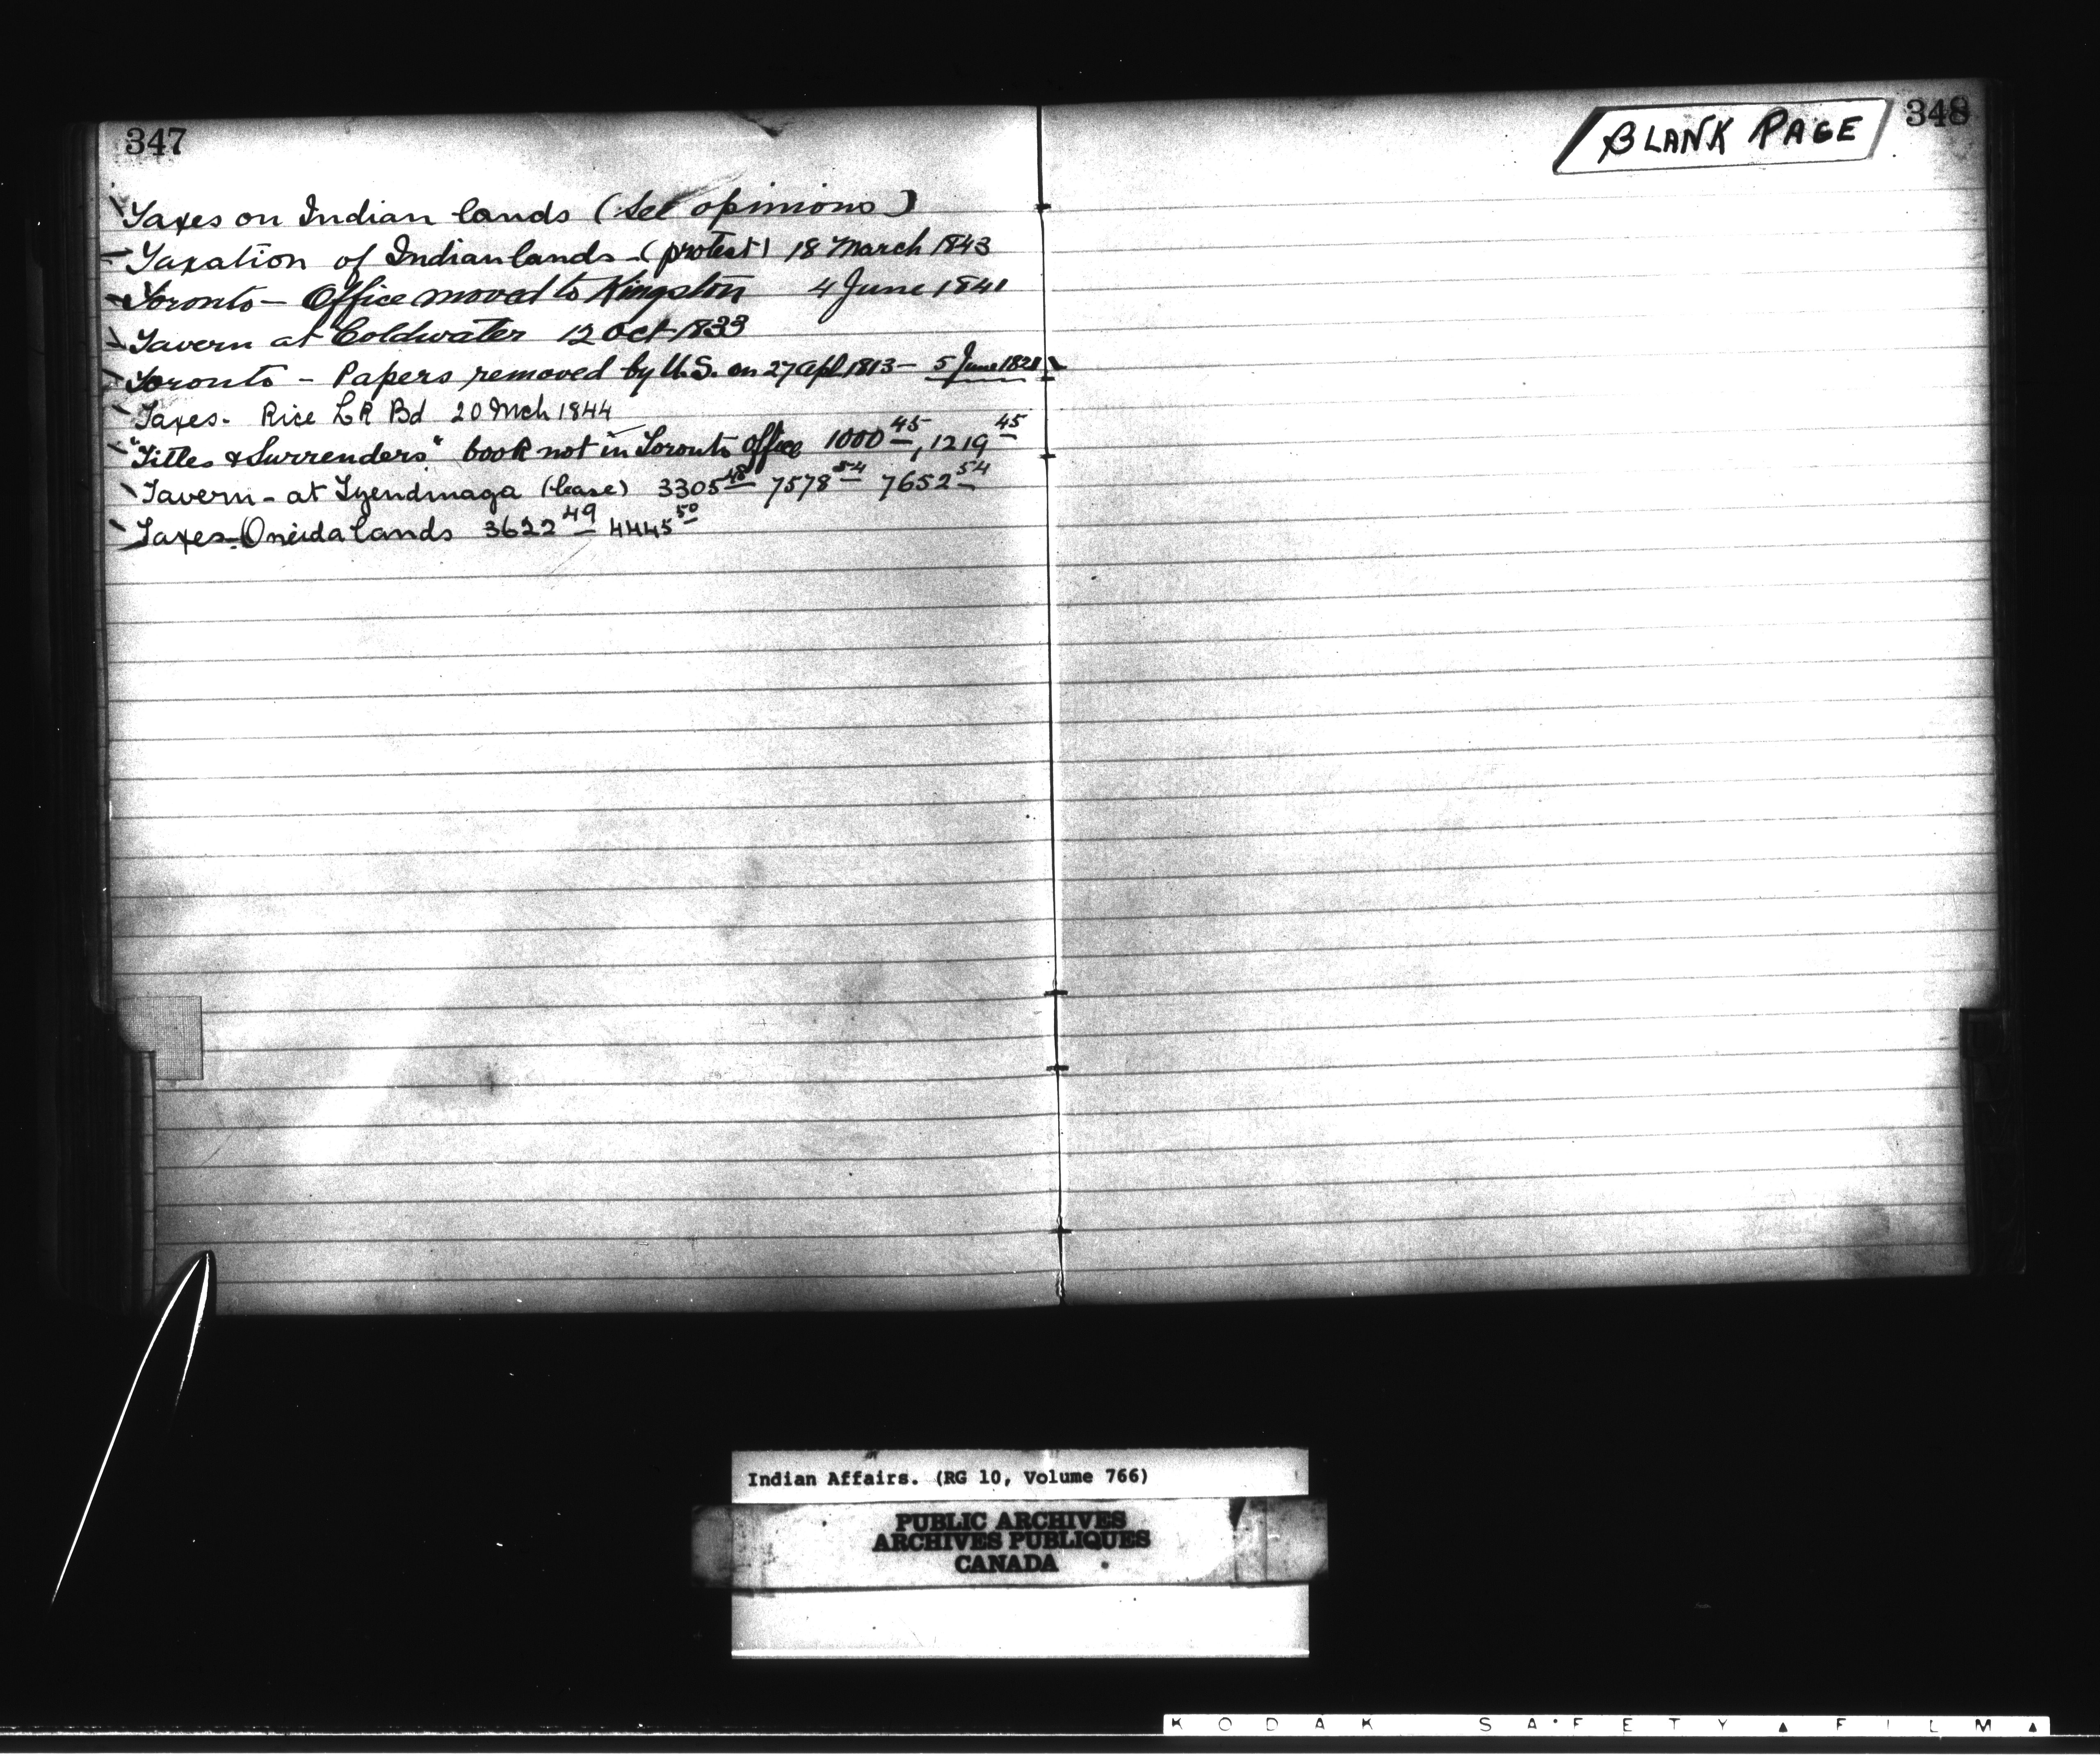 347
Taxes on Indian lands (See opinions)
Taxation of Indian lands - (protest) 18 March 1843
Toronto - Office moved to Kingston 4 June 1841
Tavern at Coldwater 12 Oct 1833
Toronto - Papers removed by U.S. on 27 apl 1813 - 5 June 1821
Taxes - Rice L R Bd 20 Mch 1844
"Titles & Surrenders" book not in Toronto Office 1000 45, 1219 45
Tavern - at Tyendinaga (lease) 3305 48 7578 54 7652 54
Taxes - Oneida lands 3622 49 4445 50
348
BLANK PAGE
Indian Affairs. (RG 10, Volume 766)
PUBLIC ARCHIVES
ARCHIVES PUBLIQUES
CANADA
KODAK SAFETY FILM